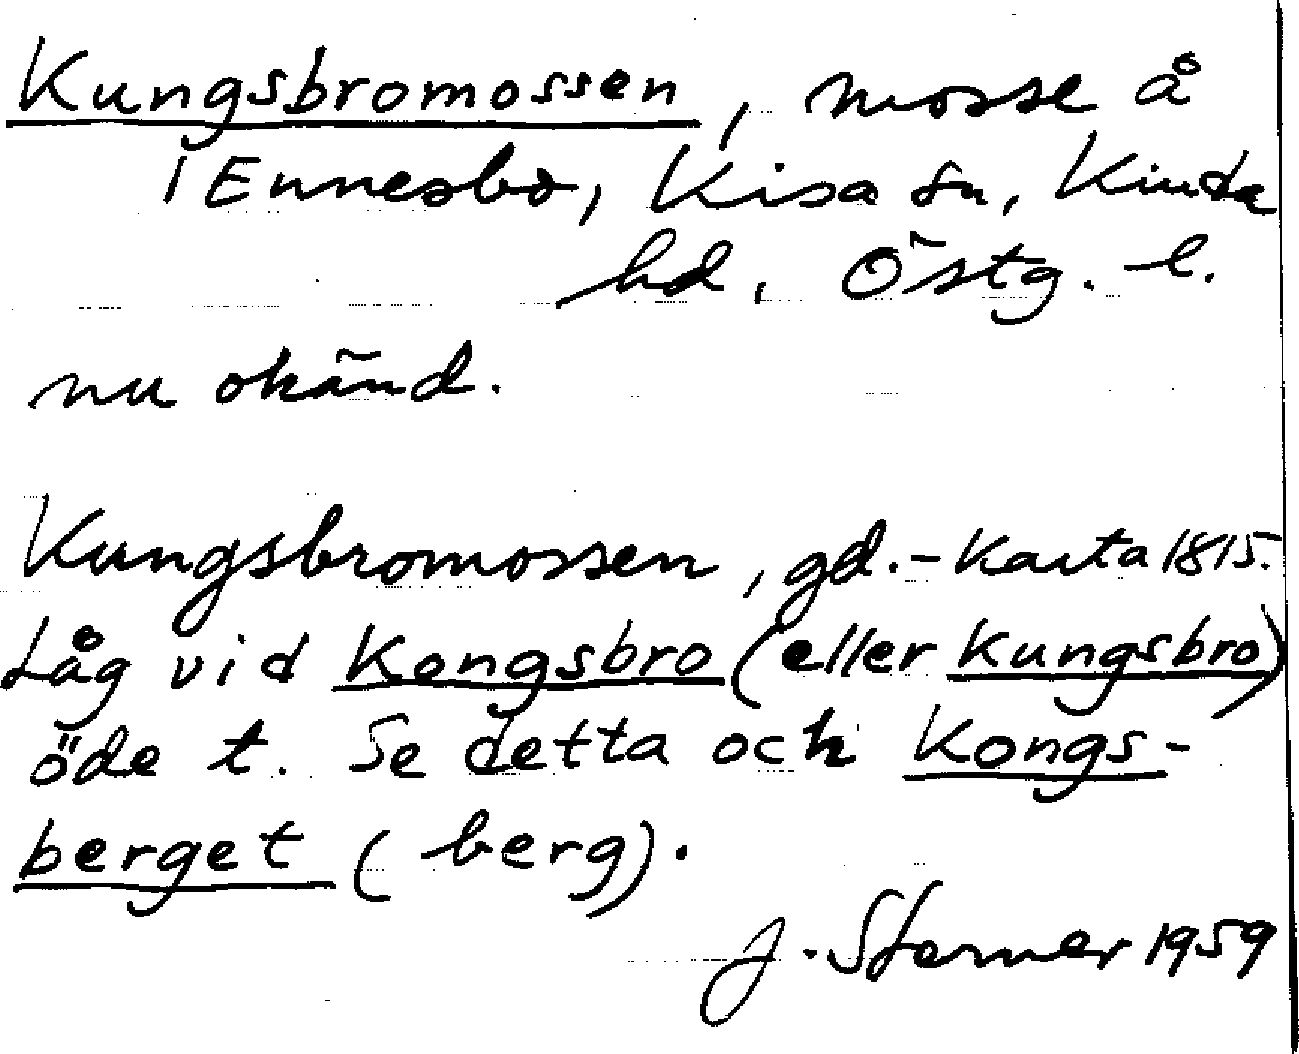 Kungsbromossen, mosse å
i Ennesbo, Kisa sn, Kinda
hd, Östg. l.
nu okänd.
Kungsbromossen, gd. - Karta 1815.
Låg vid Kongsbro (eller Kungsbro)
öde t. Se detta och Kongs-
berget (berg).
J. Sterner 1959